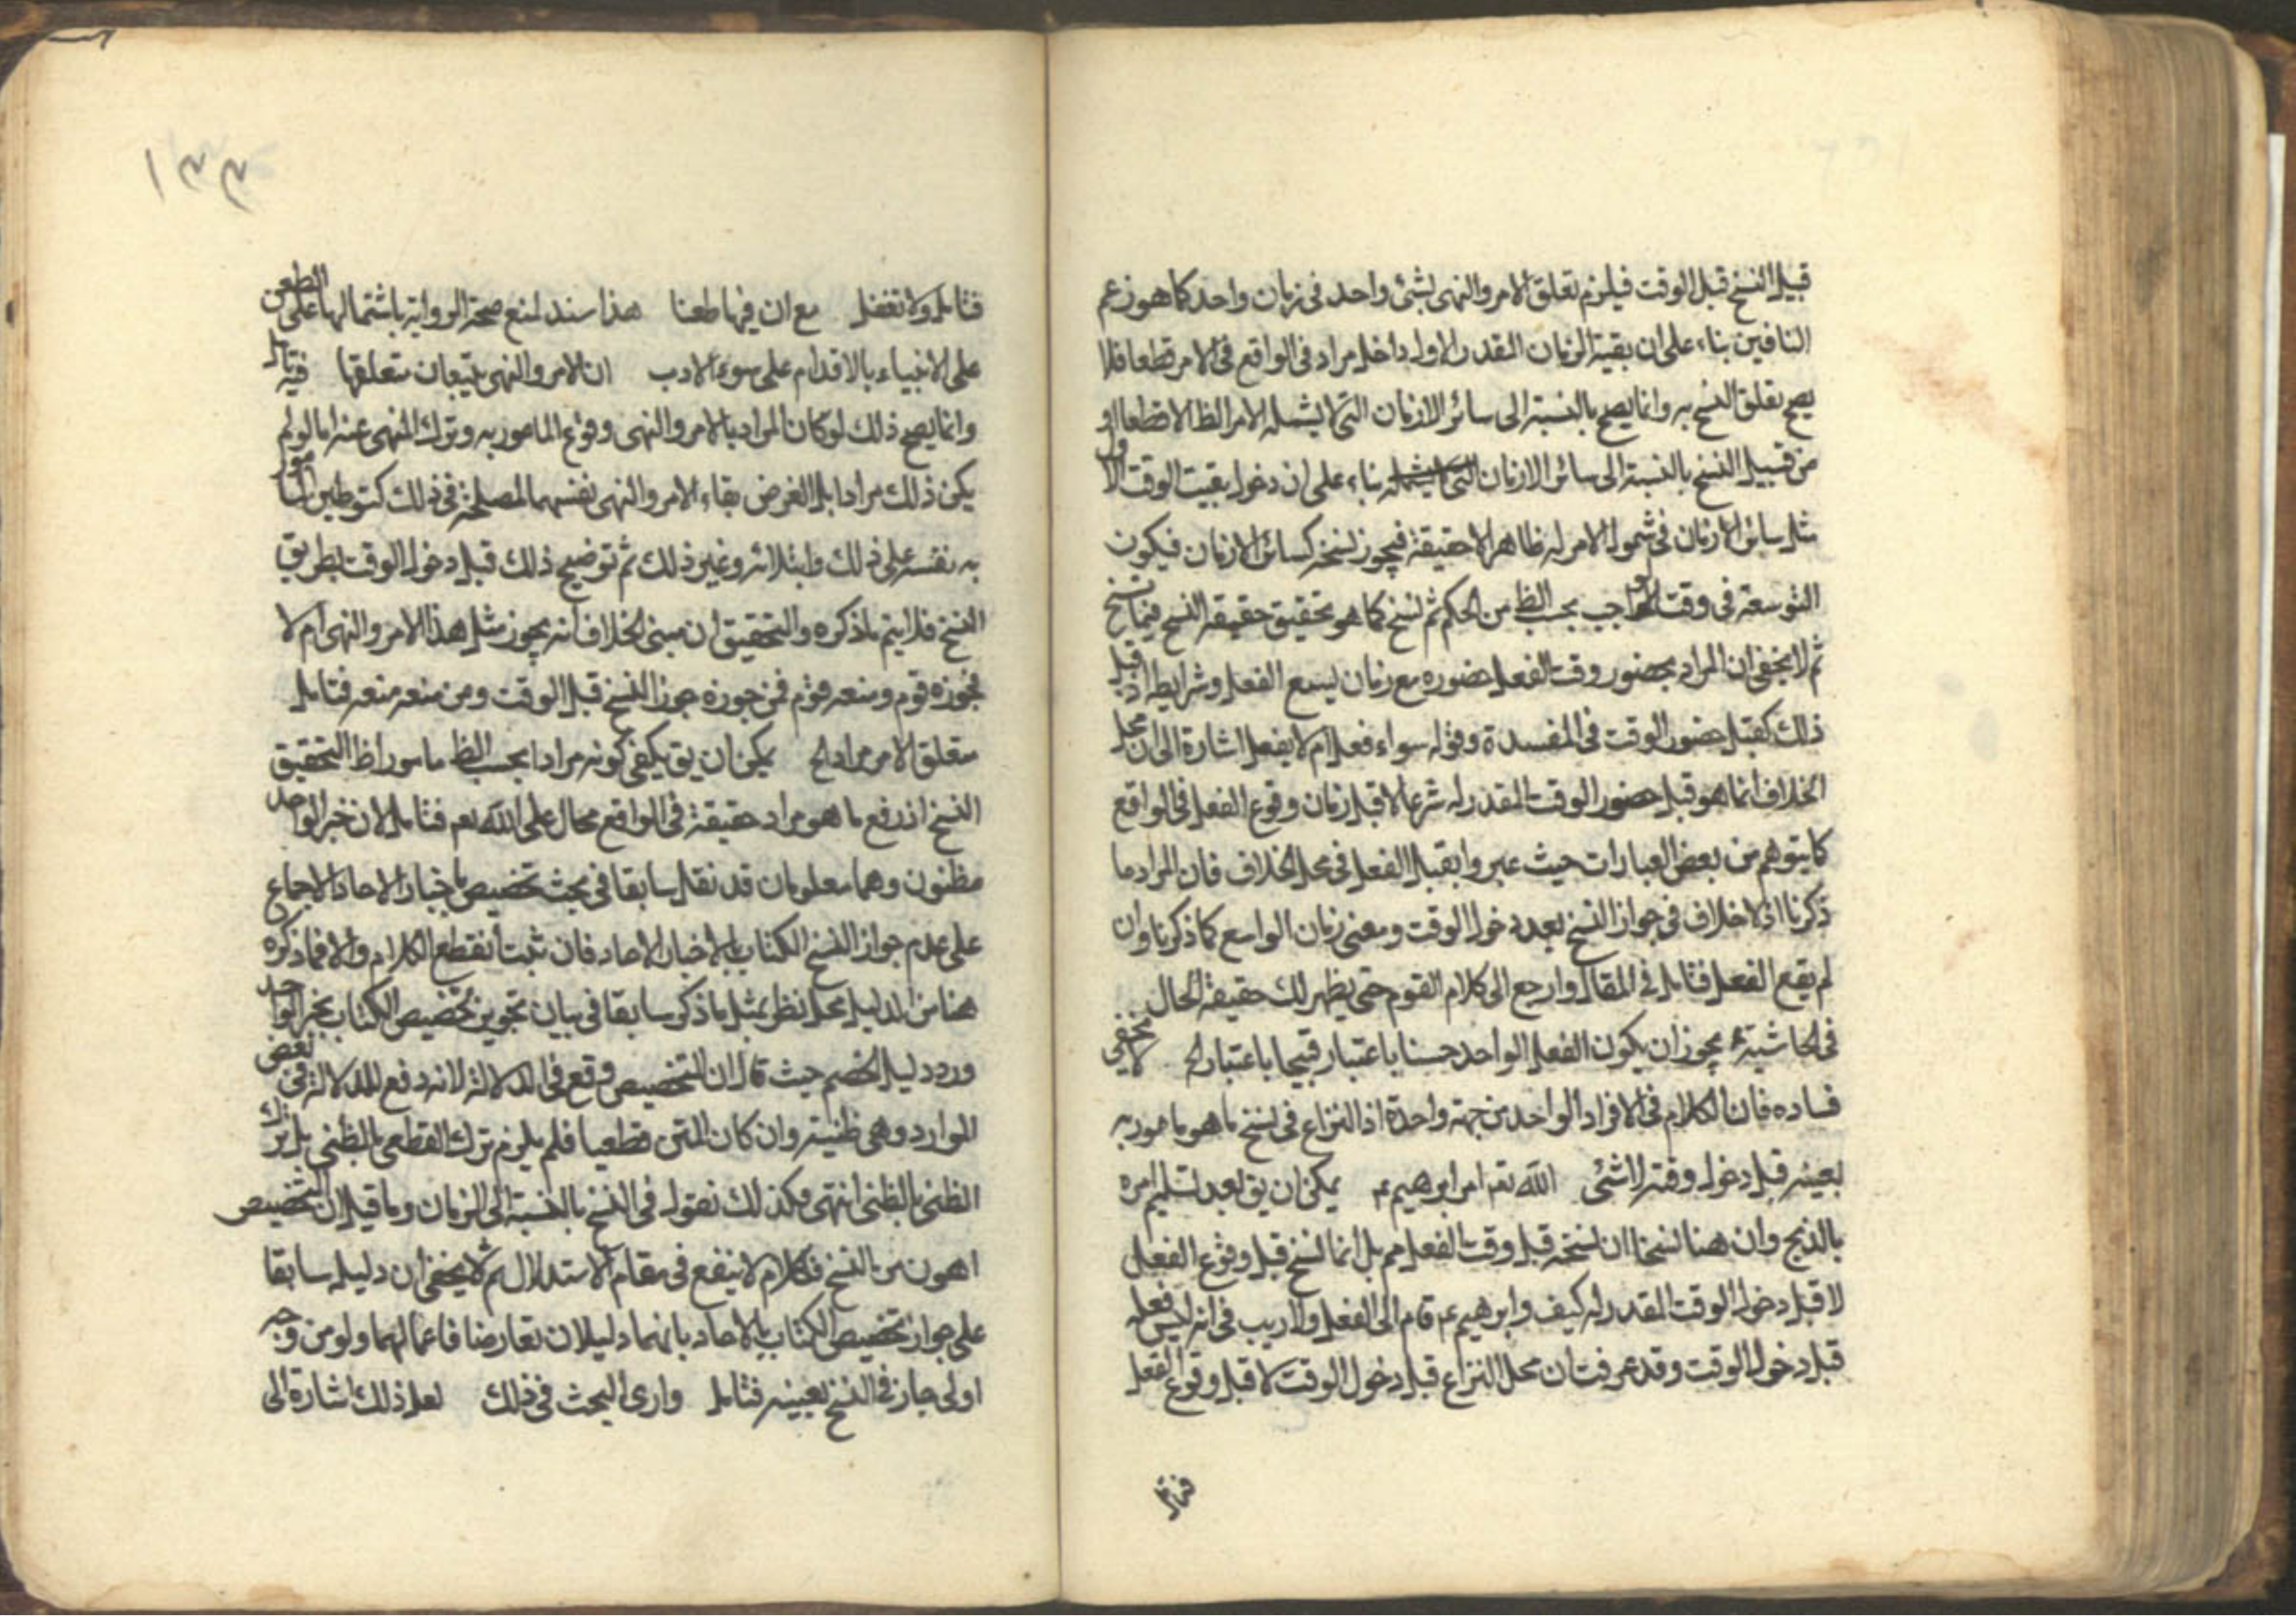 قبيل النسخ قبل الوقت فيلزم تعلق الامر والنهى بشئ واحد فى زمان واحد كما هو زعم
النافين بناء على ان بقية الزمان المقدر الاول داخل مراد فى الواقع فى الامر قطعا فلا
يصح تعلق النسخ به وانما يصح بالنسبة الى سائر الازمان التى لا يشمله الامر الظ الا قطعا او
من قبيل النسخ بالنسبة الى سائر الازمان بناء على ان دخول بقيت الوقت الاول
مثل سائر الازمان فى شمول الامر له ظاهرا لا حقيقة فيجوز نسخه كسائر الازمان فيكون
التوسعة فى وقت الواجب بحسب الظ من الحكم ثم نسخ كما هو تحقيق حقيقة النسخ فيما نسخ
ثم لا يخفى ان المراد بحضور وقت الفعل حضوره مع زمان يسع الفعل وشرايطه اذ قبل
ذلك كقبل حضور الوقت فى المفسدة وقوله سواء فعل ام لا يفعل اشارة الى ان محل
الخلاف انما هو قبل حضور الوقت المقدر له شرعا لا قبل زمان وقوع الفعل فى الواقع
كما يتوهم من بعض العبارات حيث عبروا بقبل الفعل فى محل الخلاف فان المراد ما
ذكرنا اذ لا خلاف فى جواز النسخ بعد دخول الوقت ومعنى زمان الواسع كما ذكرنا وان
لم يقع الفعل فتامل فى المقال وارجع الى كلام القوم حتى يظهر لك حقيقة الحال
فى الحاشية يجوز ان يكون الفعل الواحد حسنا باعتبار قبيحا باعتبار الخ لا يخفى
فساده فان الكلام فى الافراد الواحد من جهة واحدة اذ النزاع فى نسخ ما هو مامور به
بعينه قبل دخول وقته لا شئ الله تعم امر ابرهيم عم يمكن ان يق بعد تسليم امره
بالذبح وان هنا نسخا ان نسخه قبل وقت الفعل مم بل انما نسخ قبل وقوع الفعل
لا قبل دخول الوقت المقدر له كيف وابرهيم عم قام الى الفعل ولا ريب فى انه ليس فعله
قبل دخول الوقت وقد عرفت ان محل النزاع قبل دخول الوقت لا قبل وقوع الفعل
فتامل
١٣٣
فتامل ولا تغفل مع ان فيها طعنا هذا سند لمنع صحة الرواية باشتمالها على الطعن
على الانبياء بالاقدام على سوء الادب ان الامر والنهى يتبعان متعلقها فيه تامل
وانما يصح ذلك لو كان المراد بالامر والنهى وقوع المامور به وترك المنهى عنه اما لو لم
يكن ذلك مرادا بل الغرض بقاء الامر والنهى نفسهما لمصلحة فى ذلك كتوطين المامور
به نفسه على ذلك وابتلائه وغير ذلك ثم توضيح ذلك قبل دخول الوقت بطريق
النسخ فلا يتم ما ذكره والتحقيق ان مبنى الخلاف انه يجوز مثل هذا الامر والنهى ام لا
فجوزه قوم ومنعه قوم فمن جوزه جوز النسخ قبل الوقت ومن منعه منعه فتامل
متعلق الامر مرادا الخ يمكن ان يق يكفى كونه مرادا بحسب الظ ما مور اظ التحقيق
النسخ اذ رفع ما هو مراد حقيقة فى الواقع محال على الله تعم فتامل لان خبر الواحد
مظنون وهما معلومان قد نقل سابقا فى بحث تخصيص باخبار الاحاد الاجماع
على عدم جواز النسخ الكتاب بالاخبار الاحاد فان ثبت انقطع الكلام والا فما ذكره
هنا من الدليل محل نظر بمثل ما ذكر سابقا فى بيان تجويز تخصيص الكتاب بخبر الواحد
ورد دليل الخصم حيث قال ان التخصيص وقع فى الدلالة لانه دفع للدلالة فى بعض
الموارد وهى ظنية وان كان المتن قطعيا فلم يلزم ترك القطعى بالظنى بل ترك
الظنى بالظنى انتهى فكذلك نقول فى النسخ بالنسبة الى الزمان وما قيل ان التخصيص
اهون من النسخ فكلام لا ينفع فى مقام الاستدلال ثم لا يخفى ان دليله سابقا
على جواز تخصيص الكتاب بالاحاد بانهما دليلان تعارضا فاعمالهما ولو من وجه
اولى جاز فى النسخ بعينه فتامل وارى البحث فى ذلك لعل ذلك اشارة الى